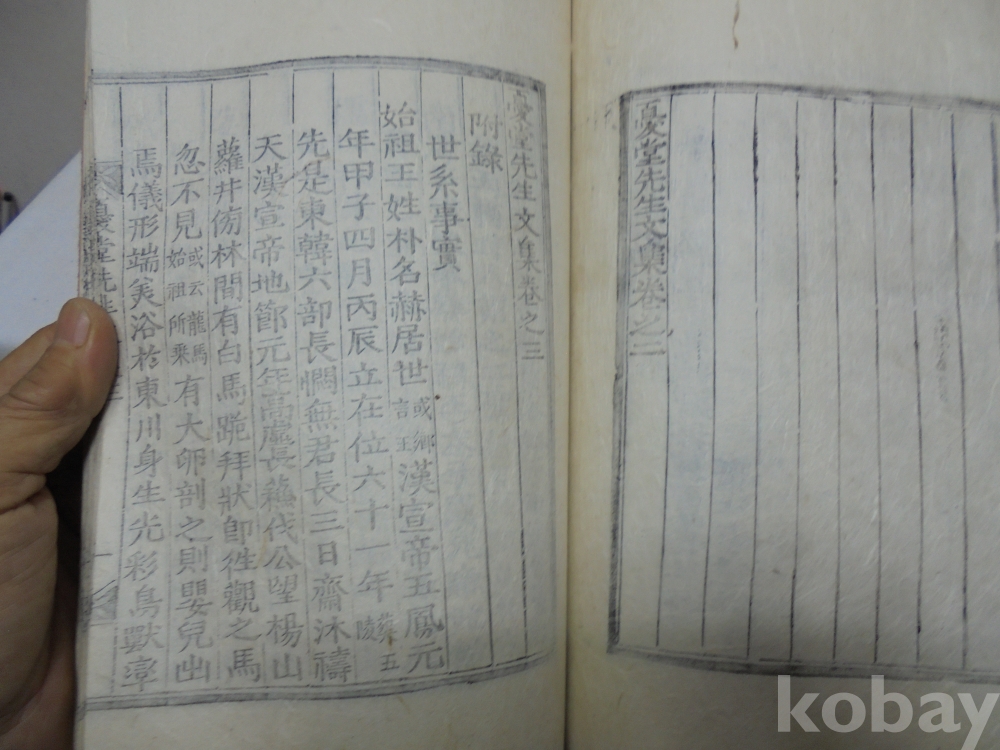 憂堂先生文集卷之二
憂堂先生文集卷之三
附錄
世系事實
始祖王姓朴名赫居世或鄕言王漢宣帝五鳳元
年甲子四月丙辰立在位六十一年葬五陵
先是東韓六部長憫無君長三日齋沐禱
天漢宣帝地節元年高墟長蘇伐公望楊山
蘿井傍林間有白馬跪拜狀卽徃觀之馬
忽不見或云龍馬始祖所乘有大卵剖之則嬰兒出
焉儀形端美浴於東川身生光彩鳥獸率
憂堂先生
kobay